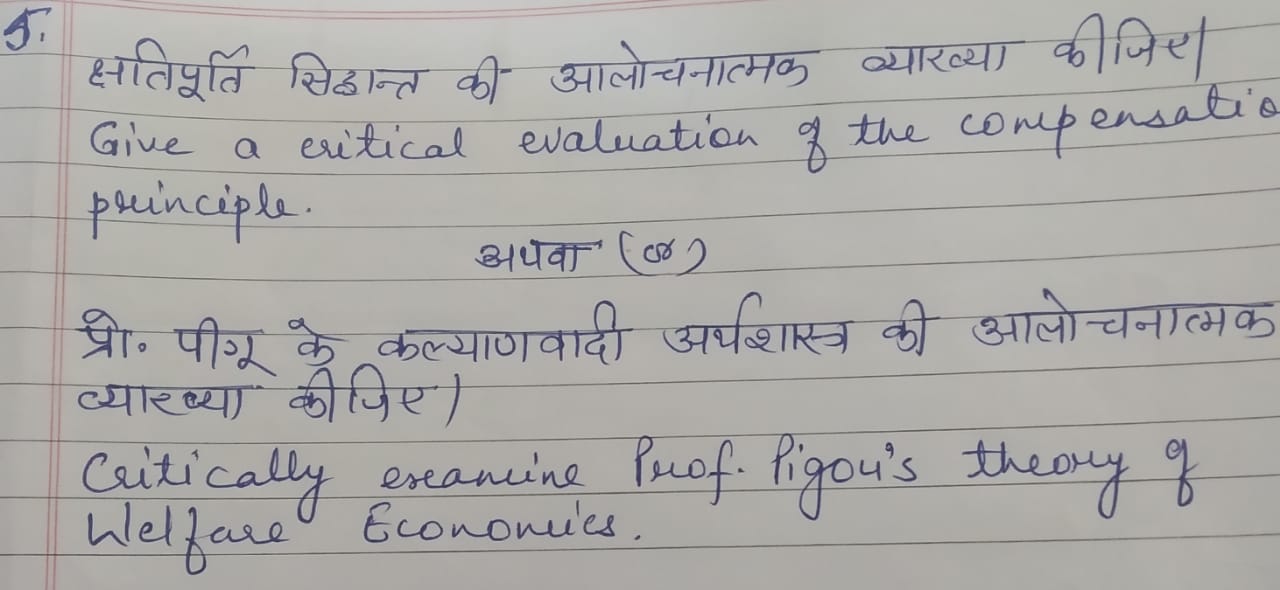 5.
क्षतिपूर्ति सिद्धान्त की आलोचनात्मक व्याख्या कीजिए।
Give a critical evaluation of the compensatio
principle.
अथवा (or)
प्रो. पीगू के कल्याणवादी अर्थशास्त्र की आलोचनात्मक
व्याख्या कीजिए।
Critically examine Prof. Pigou's theory of
Welfare Economics.